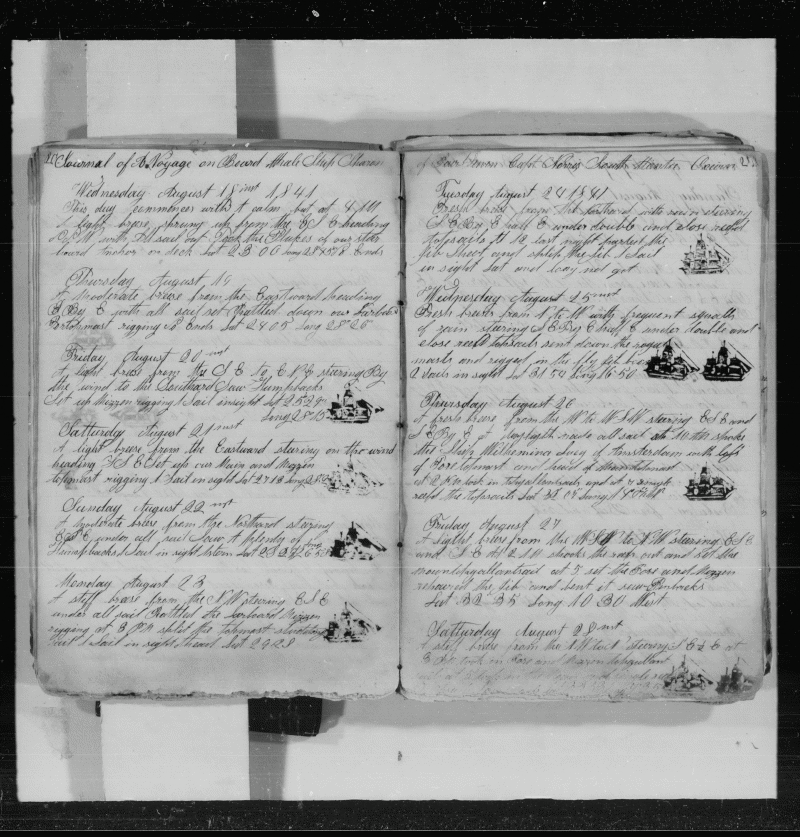 20 Journal of A Voyage on Board Whale Ship Sharon
Wednesday August 18 inst 1841
This day commences with A calm but at 4 AM
A light brese sprung up from the E S E heading
with All sail out took the flukes of our star
board Anchor on deck Lat 23 00 Long 28 Ends
Thursday August 19
A Moderate brese from the Eastward heading
S By E with all sail set Rattled down our Larbord
rigging so Ends Lat 24 05 Long 28 25
Friday August 20 inst
A light brese from the S E to E N E stearing By
the wind to the Southard Saw Humpbacks
Set up Mizzen rigging 1 Sail insight Lat 25 29
Long 28
Satturday August 21 inst
A light brese from the Eastward stearing on the wind
heading S S E Set up our Main and Mizzen
topmast rigging 1 Sail in sight Lat 27 12 Long
Sunday August 22 inst
A Moderate brese from the Northard stearing
under all sail Saw A plenty of
Humpbacks 1 Sail in sight Lat 28
Monday August 23
A stiff brese from the N W stearing E S E
under all sail Rattled the Larboard Mizzen
rigging at split the topmast studding
sail 1 Sail in sight Ahead Lat 29 28
of Fair haven Capt Norris South Atlantic Ocean 21
Tuesday August 24 1841
Fresh brese from the Northard with rain stearing
S E By E half E under double and close reeft
topsails At 12 last night parted the
jib Sheet and split the jib 1 Sail
in sight Lat and Long not got
Wednesday August 25 inst
Fresh brese from N to W with frequent squalls
of rain stearing S E By E half E under double and
close reeft topsails sent down the royal
masts and rigged in the fly jib boom
2 Sails in sight Lat 31 54 Long 16 50
Thursday August 26
A fresh brese from the W to W S W stearing E S E and
S E By E at daylight made all sail at 10 AM spoke
the Ship Wilhemina Lucy of Amsterdam with loss
of Fore topmast and head of Main topmast
at 2 PM took in topgallantsails and at 7 
reeft the topsails Lat 32 04 Long
Friday August 27
A light brese from the W S W to N W stearing E S E
and S E At 2 AM shook the reefs out and set the
main topgallantsail at 5 set the Fore and Mizzen
repaired the jib and bent it
Lat 32 35 Long 10 30 West
Satturday August 28 inst
A stiff brese from the N W stearing S E & E at
took in Fore and Mizzen topgallant